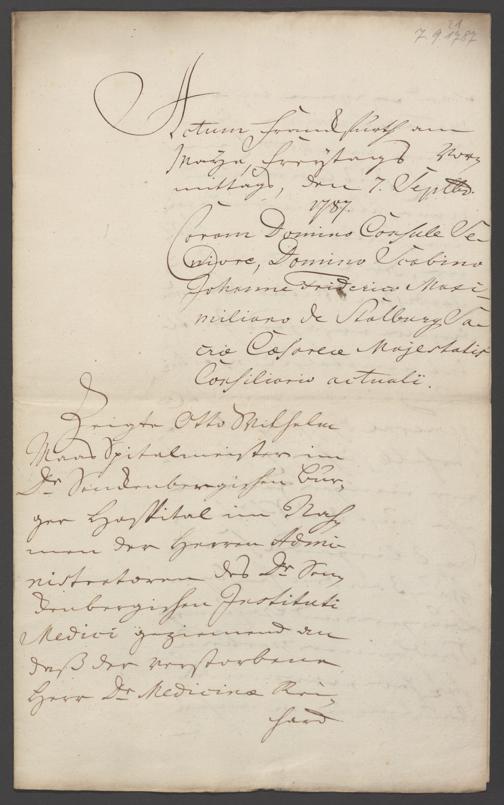 21
7. 9. 1787
Actum Franckfurth am
Mayn, Freytags Vor¬
mittags, den 7. Septbr.
1787.
Coram Domino Consule Se¬
niore, Domino Scabino
Johanne Friderico Maxi¬
miliano de Stalburg, Sa¬
cræ Cæsareæ Majestatis
Consiliario actuali.
Zeigte Otto Wilhelm
Maas Spitalmeister im
Dr. Senckenbergischen Bür¬
ger Hospital im Nah¬
men der Herren Admi¬
nistratoren des Dr. Sen¬
ckenbergischen Instituti
Medici geziemend an
daß der verstorbene
Herr Dr. Medicinæ Rei¬
hard